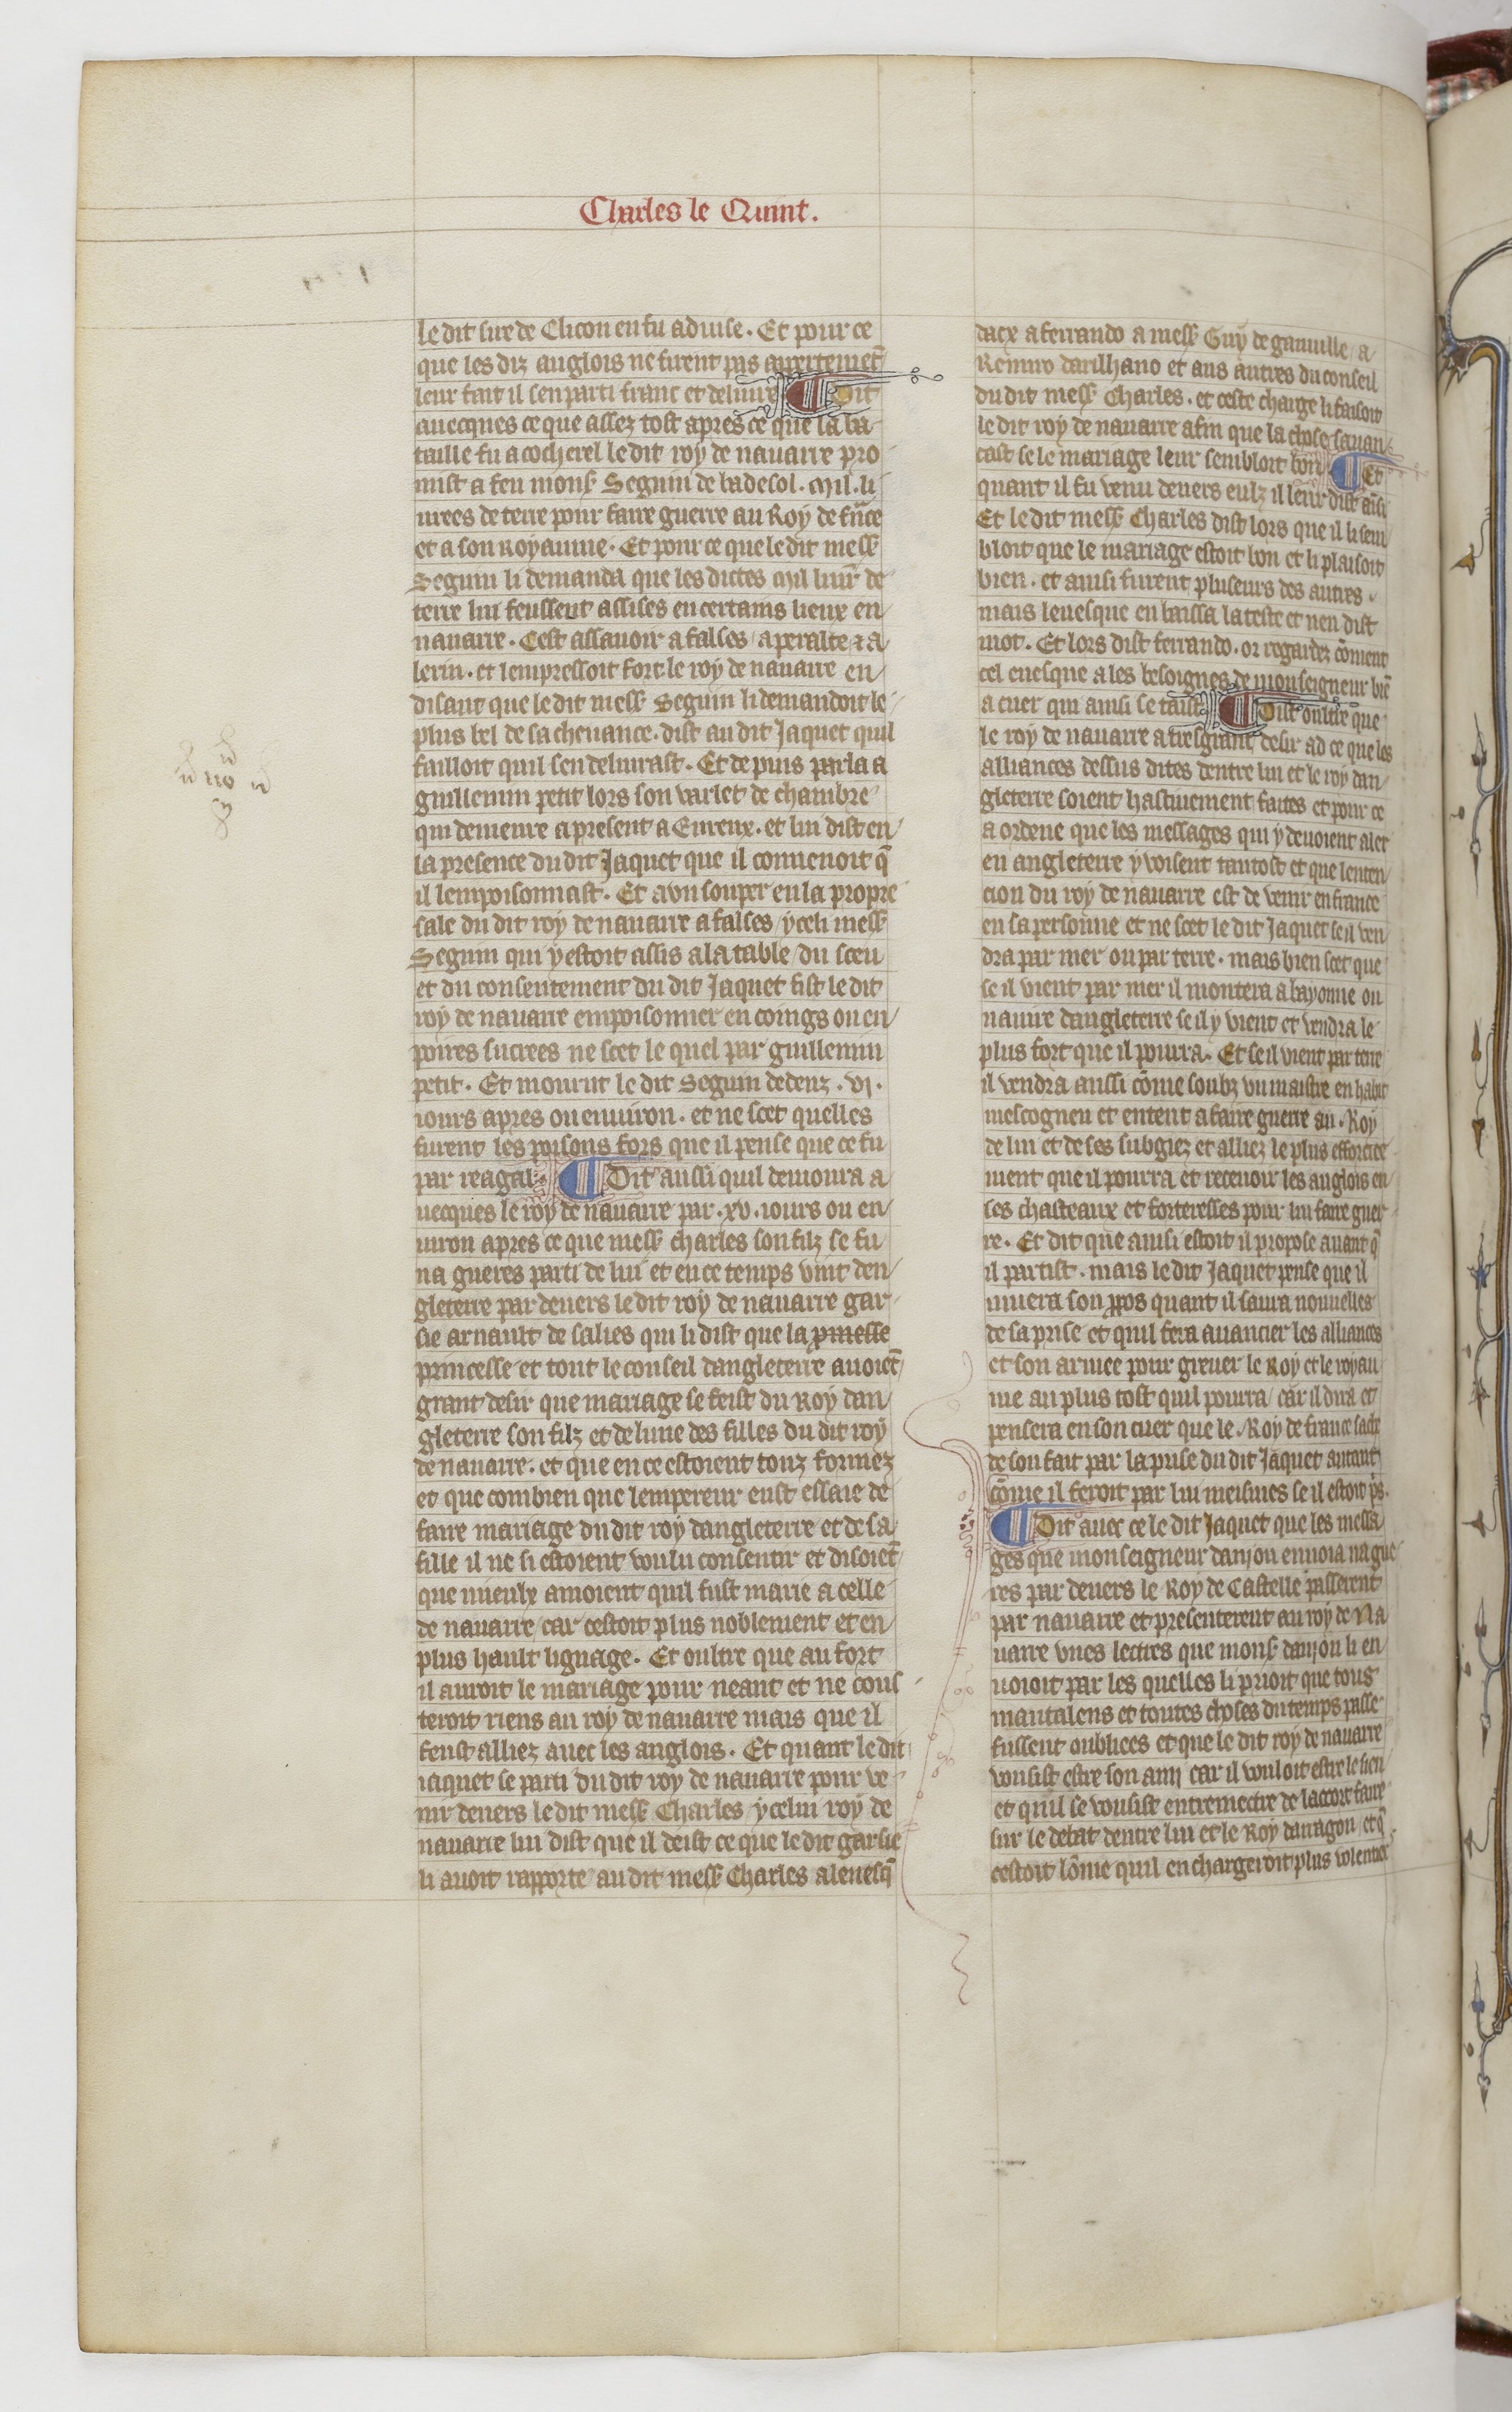 Charles le Quint.
le dit sire de Clicon en fu aduise. Et pour ce
que les diz anglois ne firent pas apertemēt
leur fait il sen parti franc et deliure ¶ Dit
auecques ce que assez tost apres ce que la ba
taille fu a cocherel le dit roy de nauarre pro
mist a feu mons Seguin de badesol. mil. li
urees de terre pour faire guerre au Roy de frāce
et a son Royaume. Et pour ce que le dit mess
Seguin li demanda que les dictes mil liur de
terre lui feussent assises en certains lieux en
nauarre. Cest assauoir a falses / a peralte ⁊ a
lerin. et lempressoit fort le roy de nauarre en
disant que le dit mess Seguin li demandoit le
plus bel de sa cheuance. dist au dit Jaquet quil
failloit quil sen deliurast. Et depuis parla a
guillemin petit lors son varlet de chambre
qui demeure a present a Eureux. et lui dist en
la presence du dit Jaquet que il conuenoit q̄
il lempoisonnast. Et a vn souper en la propre
sale du dit roy de nauarre a falses / yceli mess
Seguin qui y estoit assis a la table / du sceu
et du consentement du dit Jaquet fist le dit
roy de nauarre empoisonner en coings ou en
poires sucrees ne scet le quel par guillemin
petit. Et mourut le dit Seguin dedenz. vj.
iours apres ou enuiron. et ne scet quelles
furent les poisons fors que il pense que ce fu
par reagal. ¶ Dit aussi quil demoura a
uecques le roy de nauarre par. xv. iours ou en
uiron apres ce que mess charles son filz se fu
na gueres parti de lui et en ce temps vint den
gleterre par deuers le dit roy de nauarre gar
sie arnault de salies qui li dist que la pmesse
princesse et tout le conseil dangleterre auoiēt
grant desir que mariage se feist du Roy dan
gleterre son filz et de lune des filles du dit roy
de nauarre. et que en ce estoient touz fermez
et que combien que lempereur eust essaie de
faire mariage du dit roy dangleterre et de sa
fille il ne si estoient voulu consentir et disoiēt
que mieulx amoient quil fust marie a celle
de nauarre / car cestoit plus noblement et en
plus hault lignage. Et oultre que au fort
il auroit le mariage pour neant et ne cous
teroit riens au roy de nauarre mais que il
feust alliez auec les anglois. Et quant le dit
iaquet se parti du dit roy de nauarre pour ve
nir deuers le dit mess Charles ycelui roy de
nauarre lui dist que il deist ce que le dit garsie
li auoit rapporte au dit mess Charles a leuesq̄
dacx a ferrando a mess Guy de gauuille / a
Remiro darilhano et aus autres du conseil
du dit mess Charles. et ceste charge li faisoit
le dit roy de nauarre afin que la chose sauan
cast se le mariage leur sembloit bon ¶ Et
quant il fu venu deuers eulz il leur dist aisi
Et le dit mess Charles dist lors que il li sem
bloit que le mariage estoit bon et li plaisoit
bien. et ainsi firent pluseurs des autres.
mais leuesque en baissa la teste et nen dist
mot. Et lors dist ferrando. or regardez cōment
cel euesque a les besoignes de monseigneur biē
a cuer qui ainsi se taist ¶ Dist oultre que
le roy de nauarre a tresgrant desir ad ce que les
alliances dessus dites dentre lui et le roy dan
gleterre soient hastiuement faites et pour ce
a ordene que les messages qui y deuoient aler
en angleterre y voisent tantost et que lenten
cion du roy de nauarre est de venir en france
en sa personne et ne scet le dit Jaquet se il ven
dra par mer ou par terre. mais bien scet que
se il vient par mer il montera a bayonne ou
nauire dangleterre se il y vient et vendra le
plus fort que il pourra. Et se il vient par terre
il vendra aussi cōme soubz vn maistre en habit
mescogneu et entent a faire guerre au. Roy
de lui et de ses subgiez et alliez le plus efforciee
ment que il pourra et receuoir les anglois en
ses chasteaux et forteresses pour lui faire guer
re. Et dit que ainsi estoit il propose auant q̄
il partist. mais le dit Jaquet pense que il
muera son ppos quant il saura nouuelles
de sa prise et quil fera auancier les alliances
et son armee pour greuer le Roy et le royau
me au plus tost quil pourra / car il dira et
pensera en son cuer que le. Roy de france sache
de son fait par la prise du dit Jaquet autant
cōme il feroit par lui meismes se il estoit p̄s.
¶ Dit auec ce le dit Jaquet que les messa
ges que monseigneur danjou enuoia na gue
res par deuers le Roy de Castelle passerent
par nauarre et presenterent au roy de Na
uarre vnes lectres que mons danjou li en
uoioit par les quelles li prioit que tous
mautalens et toutes choses du temps passe
fussent oubliees et que le dit roy de nauarre
vousist estre son amj car il vouloit estre le sien
et quil se vousist entremectre de laccort faire
sur le debat dentre lui et le Roy darragon / et q̄
cestoit lōme quil en chargeroit plus volentiers